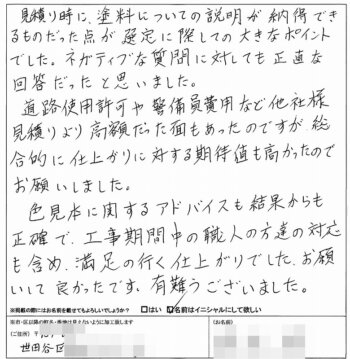 見積り時に、塗料についての説明が納得でき
るものだった点が選定に際しての大きなポイント
でした。ネガティブな質問に対しても正直な
回答だったと思いました。
道路使用許可や警備員費用など他社様
見積りより高額だった面もあったのですが総
合的に仕上がりに対する期待値も高かったので
お願いしました。
色見本に関するアドバイスも結果からも
正確で、工事期間中の職人の方達の対応
も含め、満足の行く仕上がりでした。お願
いして良かったです。有難うございました。
※掲載の際にはお名前を載せてもよろしいでしょうか? □はい ☑名前はイニシャルにして欲しい
(ご住所) 〒
(お名前)
世田谷区